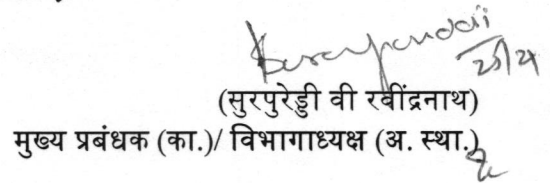 (सुरपुरेड्डी वी रवींद्रनाथ)
मुख्य प्रबंधक (का.)/ विभागाध्यक्ष (अ. स्था.)